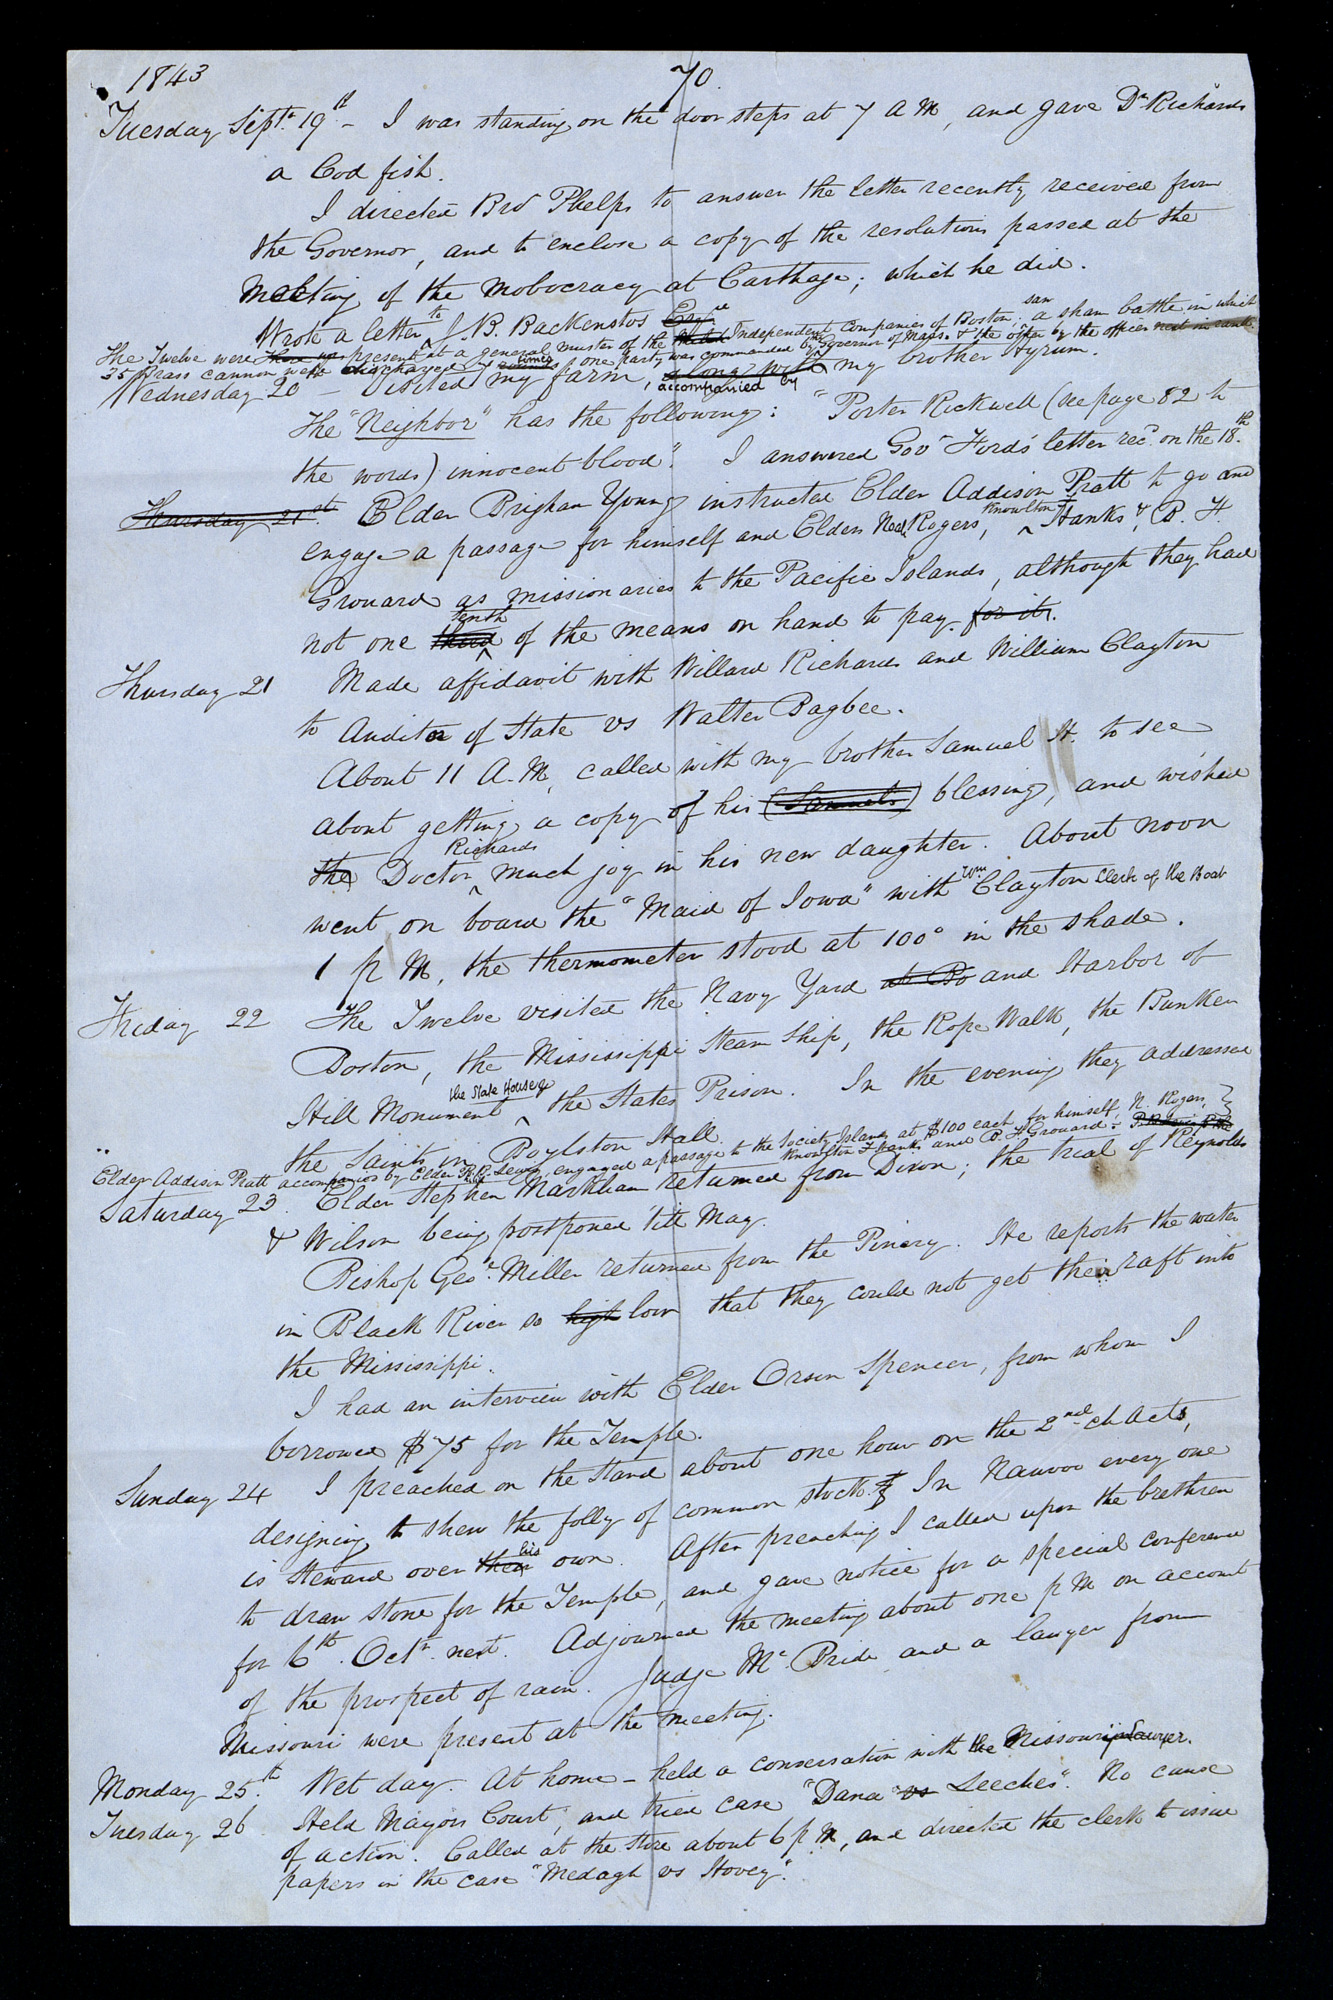 1843
70.
Tuesday Sept.r 19th – I was standing on the door steps at 7 A M, and gave Dr Richards
a Cod fish.
I directed Bro Phelps to answer the letter recently received from
the Governor, and to enclose a copy of the resolutions passed at the
Meeting of the mobocracy at Carthage; which he did.
Wrote a letter to J. B. Backenstos Esqre
The Twelve were present at a general muster of the Independent Companies of Boston; saw a sham battle in which
35 brass cannon were discharged times one party was commanded by the Governor of Mass. & the other by the officer next in rank.
Wednesday 20 – Visited my farm, along with accompanied by my brother Hyrum.
The "Neighbor" has the following: "Porter Rockwell (see page 82 to
the words) innocent blood". I answered Govr Ford's letter recd. on the 18.th
Thursday 21st. Elder Brigham Young instructed Elder Addison Pratt to go and
engage a passage for himself and Elders Noah Rogers, Knowlton F. Hanks & B. F.
Grouard as missionaries to the Pacific Islands, although they had
not one third tenth of the means on hand to pay. for it.
Thursday 21 Made affidavit with Willard Richards and William Clayton
to Auditor of State vs Walter Bagbee.
About 11 A. M. called with my brother Samuel H. to see
about getting a copy of his (Samuel's) blessing, and wished
the Doctor Richards much joy in his new daughter. About noon
went on board the "Maid of Iowa" with Wm Clayton Clerk of the Boat
1 p M, the thermometer stood at 100° in the shade.
Friday 22 The Twelve visited the Navy Yard at Bo and Harbor of
Boston, the Mississippi Steam Ship, the Rope Walk, the Bunker
Hill Monument the State House & the States Prison. In the evening they addressed
the Saints in Boylston Hall.
Elder Addison Pratt accompanied by Elder P. B. Lewis, engaged a passage to the Society Islands at $100 each for himself, N. Rogers,
Knowlton F. Hanks and B. F. Grouard.
Saturday 23. Elder Stephen Markham returned from Dixon; the trial of Reynolds
& Wilson being postponed 'till May.
Bishop Geo. Miller returned from the Pinery. He reports the water
in Black River so high low that they could not get their raft into
the Mississippi.
I had an interview with Elder Orson Spencer, from whom I
borrowed $75 for the Temple.
Sunday 24 I preached on the Stand about one hour on the 2nd ch Acts,
designing to shew the folly of common stock. In Nauvoo every one
is Steward over their his own. After preaching I called upon the brethren
to draw stone for the Temple, and gave notice for a special conference
for 6th. Octr. next. Adjourned the meeting about one p M on account
of the prospect of rain. Judge Mc.Bride and a lawyer from
Missouri were present at the meeting.
Monday 25.th Wet day. At home – held a conversation with the Missouri Lawyer.
Tuesday 26 Held Mayors Court, and tried case "Dana vs Leeches". No cause
of action. Called at the Store about 6 p M, and directed the clerk to issue
papers in the case "Medagh vs Hovey".